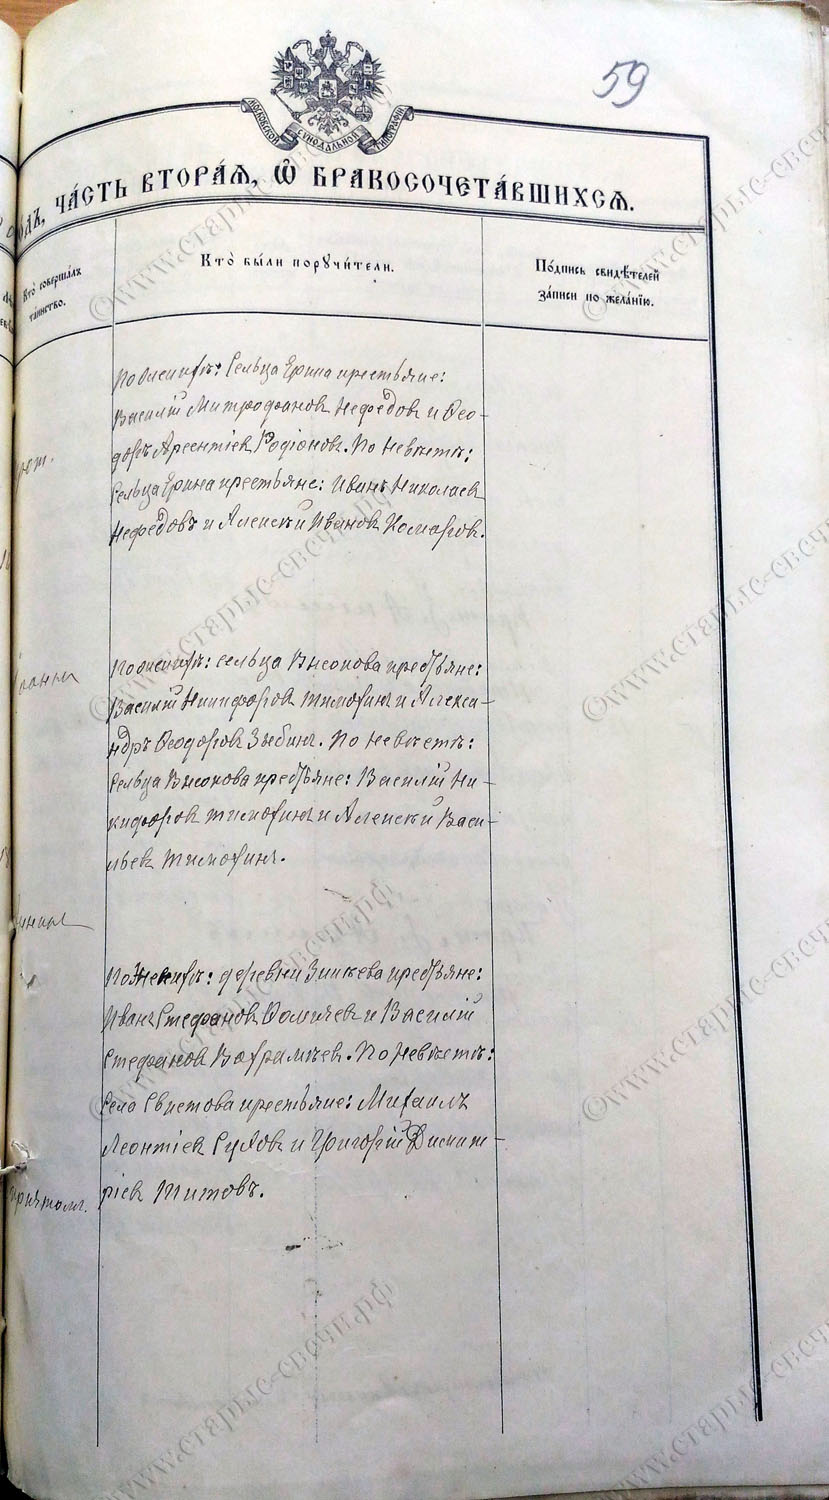 59
МОСКОВСКОЙ СѴНОДАЛЬНОЙ ТИПОГРАФІИ
ЧА́СТЬ ВТОРА́Ѧ, Ѽ БРАКОСОЧЕТА́ВШИХСѦ.
Кто̀ соверша́лъ
та́инство.
Кто̀ бы́ли порꙋчи́тели.
По́дпись свидѣ́телей
за́писи по жела́нїю.
По женихѣ: Сельца Ерина крестьяне:
Василій Митрофанов Нефедов и Ѳео-
доръ Арсентіев Родіонов. По невѣстѣ:
Сельца Ерина крестьяне: Иванъ Николаев
Нефедовъ и Алексѣй Иванов Комаров.
По женихѣ: сельца Высокова крестьяне:
Василій Никифоров Тимофинъ и Алекса-
ндръ Ѳеодоров Зыбинъ. По невѣстѣ:
Сельца Высокова крестьяне: Василій Ни-
кифоров Тимофинъ и Алексѣй Васи-
льев Тимофинъ.
По женихѣ: деревни крестьяне:
Иванъ Стефанов и Василій
Стефанов По невѣстѣ:
Села крестьяне: Михаилъ
Леонтіев и Григорій Димит-
ріев Титовъ.
©www.старые-свечи.рф